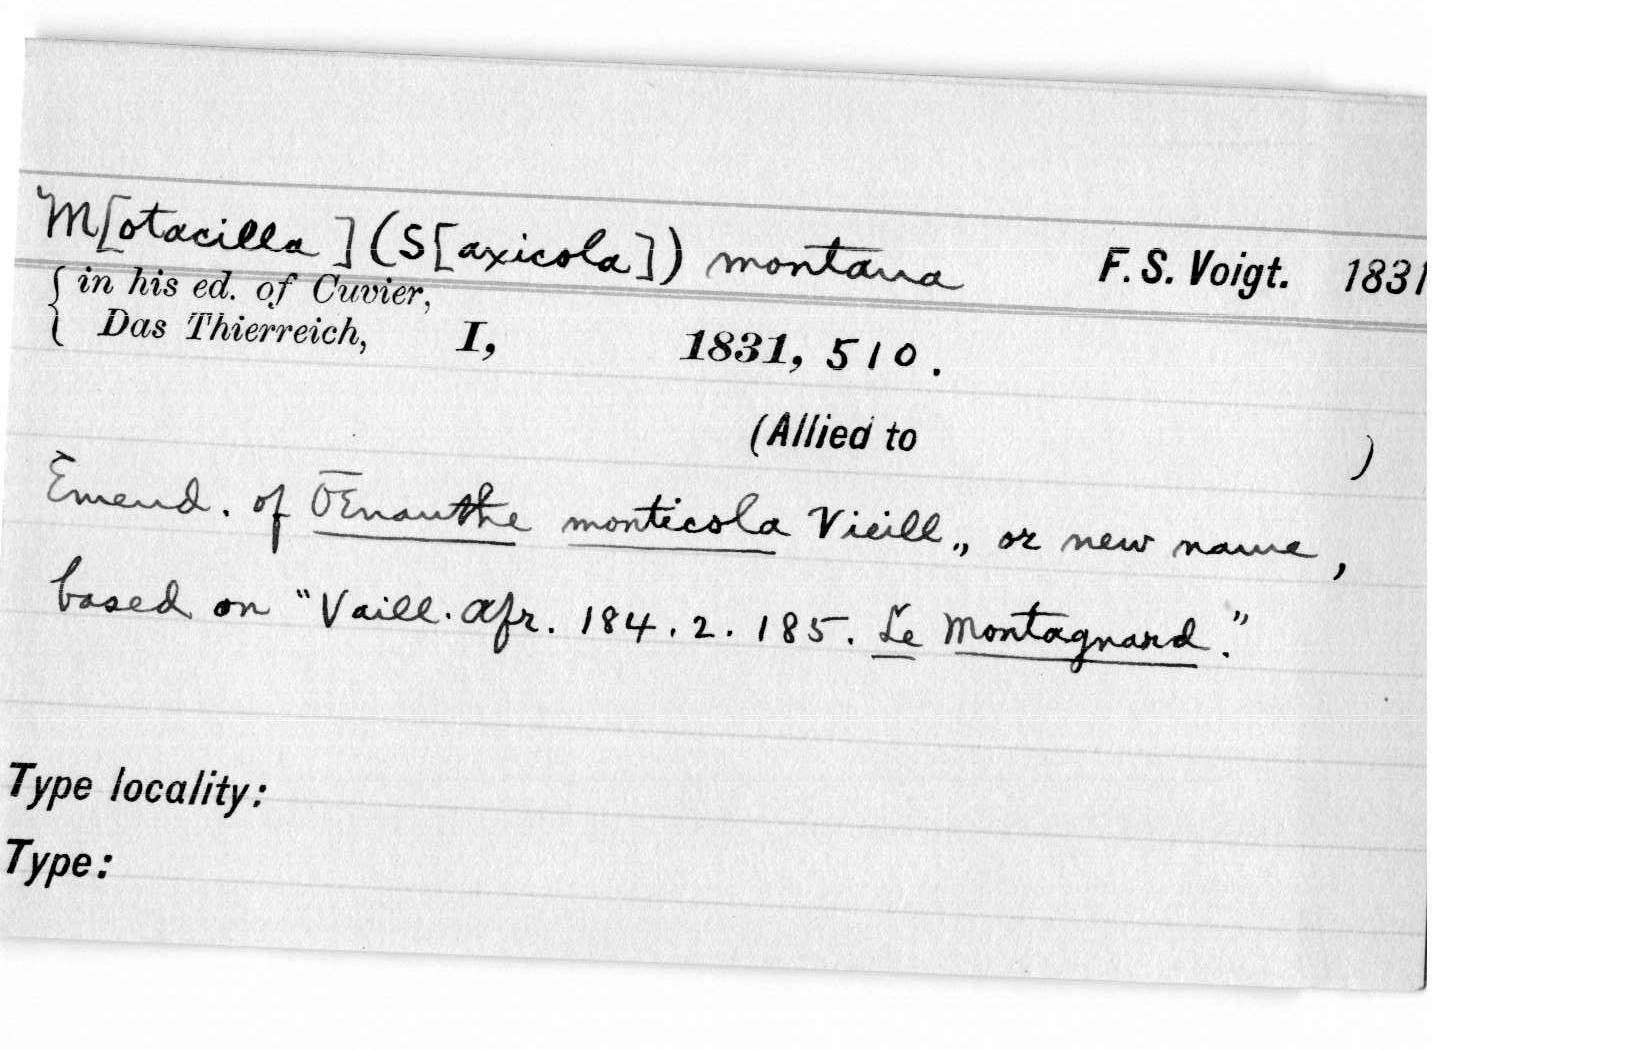 M[otacilla] (S[axicola]) montana F. S. Voigt. 1831
{ in his ed. of Cuvier,
Das Thierreich, I, 1831, 510.
(Allied to )
Emend. of OEnanthe monticola Vieill., or new name,
based on "Vaill. Afr. 184. 2. 185. Le Montagnard."
Type locality:
Type: